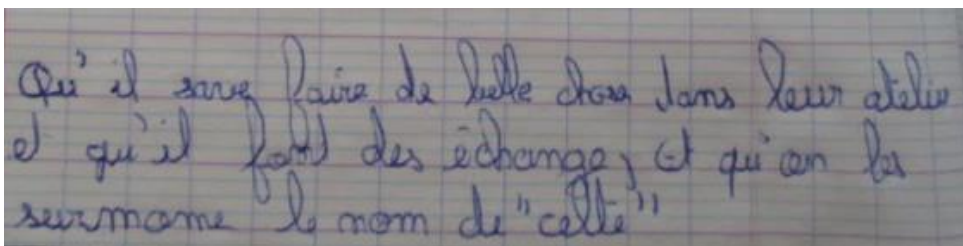 Qu'il save faire de belle chose dans leur atelie
et qu'il font des échange, Et qu'on les
surnome le nom de "celte"